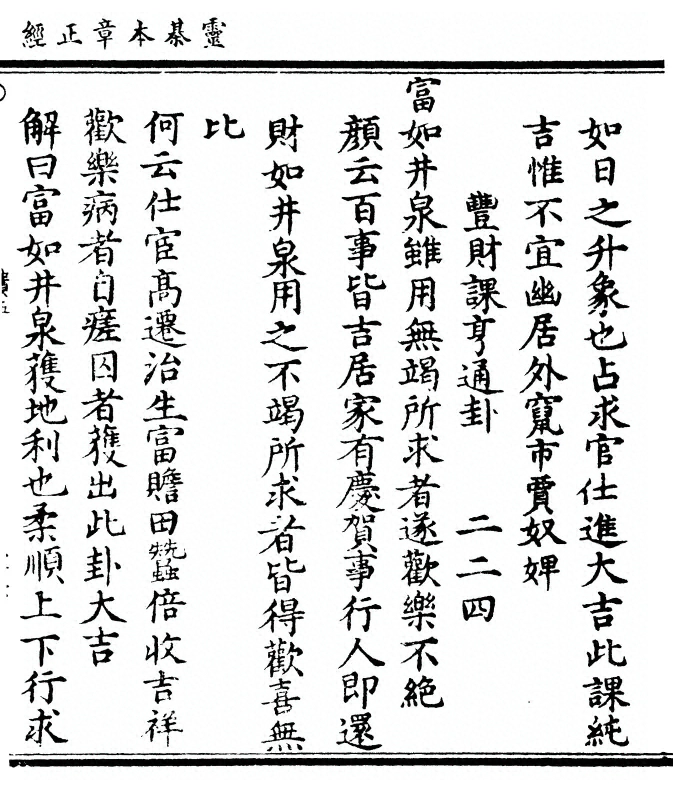 靈棊本章正經
如日之升象也占求官仕進大吉此課純
吉惟不宜幽居外竄市賣奴婢
豐財課亨通卦 二二四
富如井泉雖用無竭所求者遂歡樂不絕
顏云百事皆吉居家有慶賀事行人即還
財如井泉用之不竭所求者皆得歡喜無
比
何云仕宦高遷治生富贍田蠶倍收吉祥
歡樂病者自瘥囚者獲出此卦大吉
解曰富如井泉獲地利也柔順上下行求